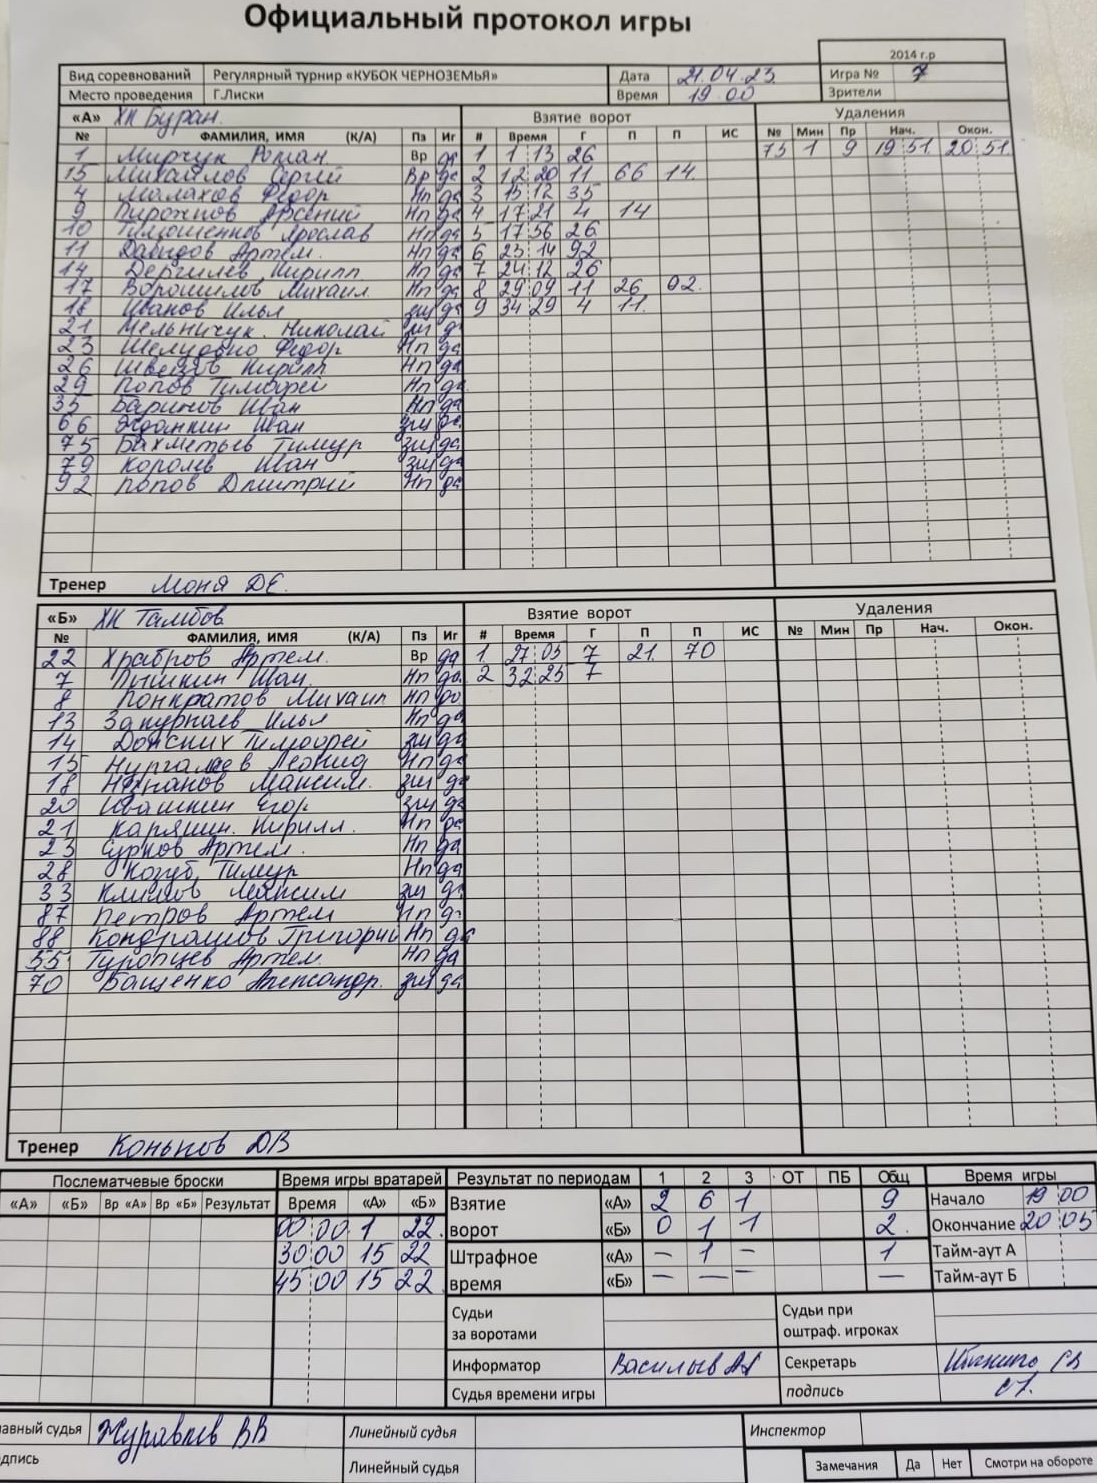 Официальный протокол игры
2014 г.р
Вид соревнований Регулярный турнир «КУБОК ЧЕРНОЗЕМЬЯ» Дата 21.04.23 Игра № 7
Место проведения Г.Лиски Время 19.00 Зрители
«А» ХК Буран. Взятие ворот Удаления
№ ФАМИЛИЯ, ИМЯ (К/А) Пз Иг # Время Г П П ИС № Мин Пр Нач. Окон.
1 Мирчук Роман Вр да 1 1 13 26 75 1 9 19 51 20 51
15 Михайлов Сергей Вр да 2 12 20 11 66 14
4 Малахов Федор Нп да 3 15 12 35
9 Пирожков Арсений Нп да 4 17 21 4 14
10 Тимошенков Ярослав Нп да 5 17 56 26
11 Давыдов Артем. Нп да 6 23 14 92
14 Дергилев Кирилл Нп да 7 24 12 26
17 Ворошилов Михаил Нп да 8 29 09 11 26 92
18 Иванов Илья защ да 9 34 29 4 11
21 Мельничук Николай защ да
23 Шелудько Федор Нп да
26 Швецов Кирилл Нп да
29 Попов Тимофей Нп да
35 Баринов Иван Нп да
66 Жданкин Иван защ да
75 Бахметьев Тимур защ да
79 Королев Иван защ да
92 Попов Дмитрий Нп да
Тренер Моня ДЕ.
«Б» ХК Тамбов Взятие ворот Удаления
№ ФАМИЛИЯ, ИМЯ (К/А) Пз Иг # Время Г П П ИС № Мин Пр Нач. Окон.
22 Храбров Артем. Вр да 1 27 05 7 21 70
7 Пышкин Иван. Нп да 2 32 25 7
8 Понкратов Михаил Нп да
13 Закурнаев Илья Нп да
14 Донских Тимофей защ да
15 Нургалеев Леонид Нп да
18 Максим. защ да
20 Ивашкин Егор защ да
21 Карякин. Кирилл. Нп да
23 Сурков Артем. Нп да
28 Козуб Тимур Нп да
33 Климов Максим защ да
87 Петров Артем Нп да
88 Кондрашов Григорий Нп да
55 Туропцев Артем. Нп да
70 Ващенко Александр. защ да
Тренер Коньков ДВ
Послематчевые броски Время игры вратарей Результат по периодам 1 2 3 ОТ ПБ Общ Время игры
«А» «Б» Вр «А» Вр «Б» Результат Время «А» «Б» Взятие «А» 2 6 1 9 Начало 19 00
00 00 1 22 ворот «Б» 0 1 1 2 Окончание 20 05
30 00 15 22 Штрафное «А» – 1 – 1 Тайм-аут А
45 00 15 22 время «Б» – – – – Тайм-аут Б
Судьи за воротами Судьи при оштраф. игроках
Информатор Васильев Секретарь
Судья времени игры подпись
авный судья Журавлев ВВ Линейный судья Инспектор
дпись Линейный судья Замечания Да Нет Смотри на обороте